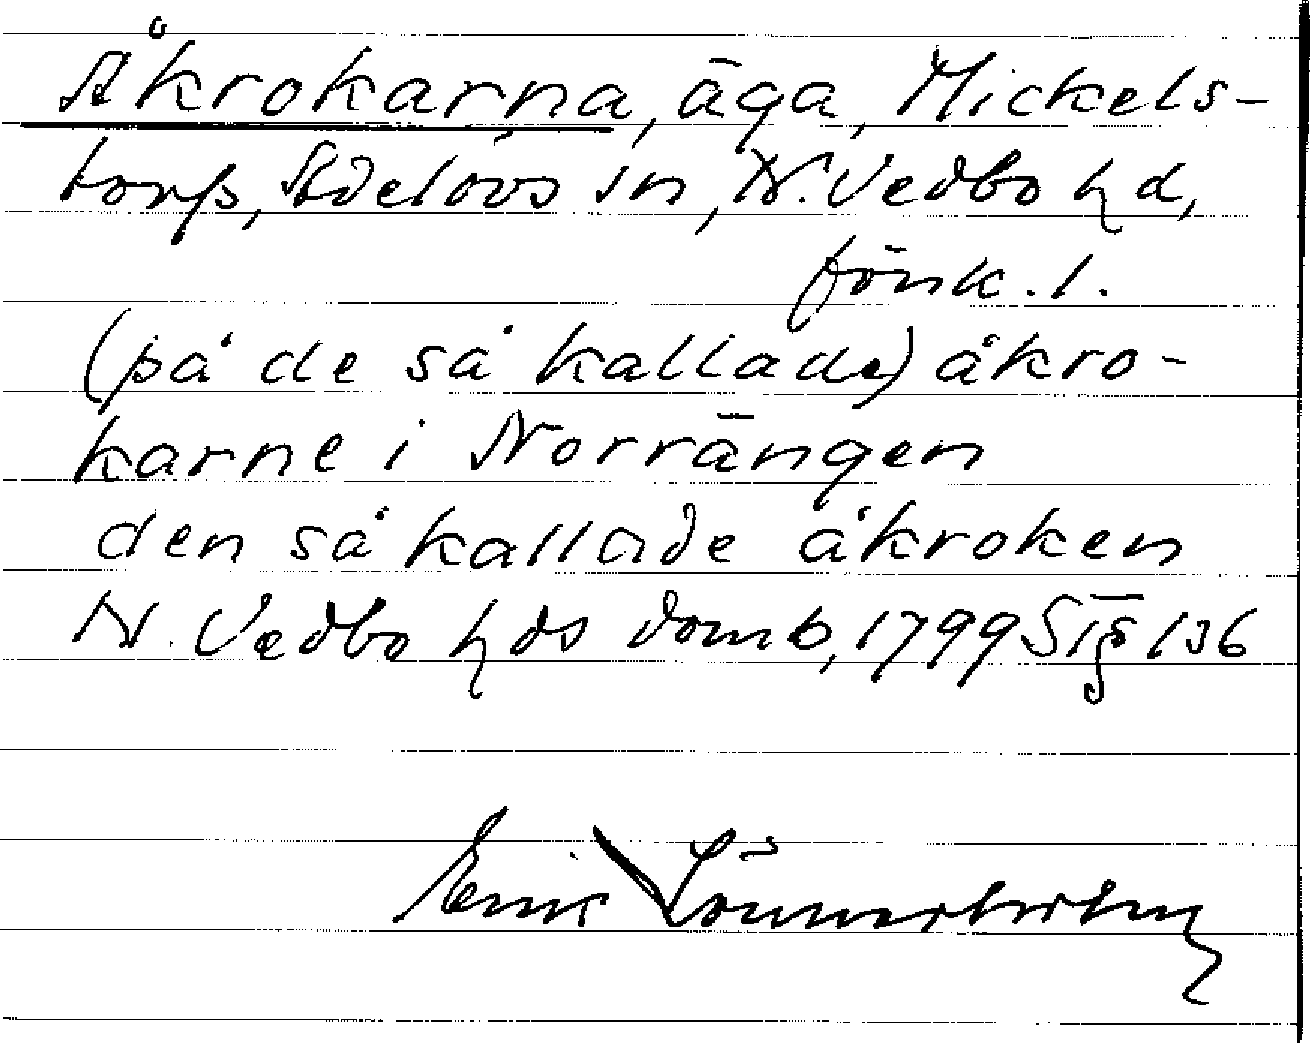 Åkrokarna, äga, Mickels-
torp, Adelövs sn, N. Vedbo hd,
Jönk. l.
(på de så kallade) åkro-
karne i Norrängen
den så kallade åkroken
N. Vedbo hds domb, 1799 § 136
Erik Lönnerholm